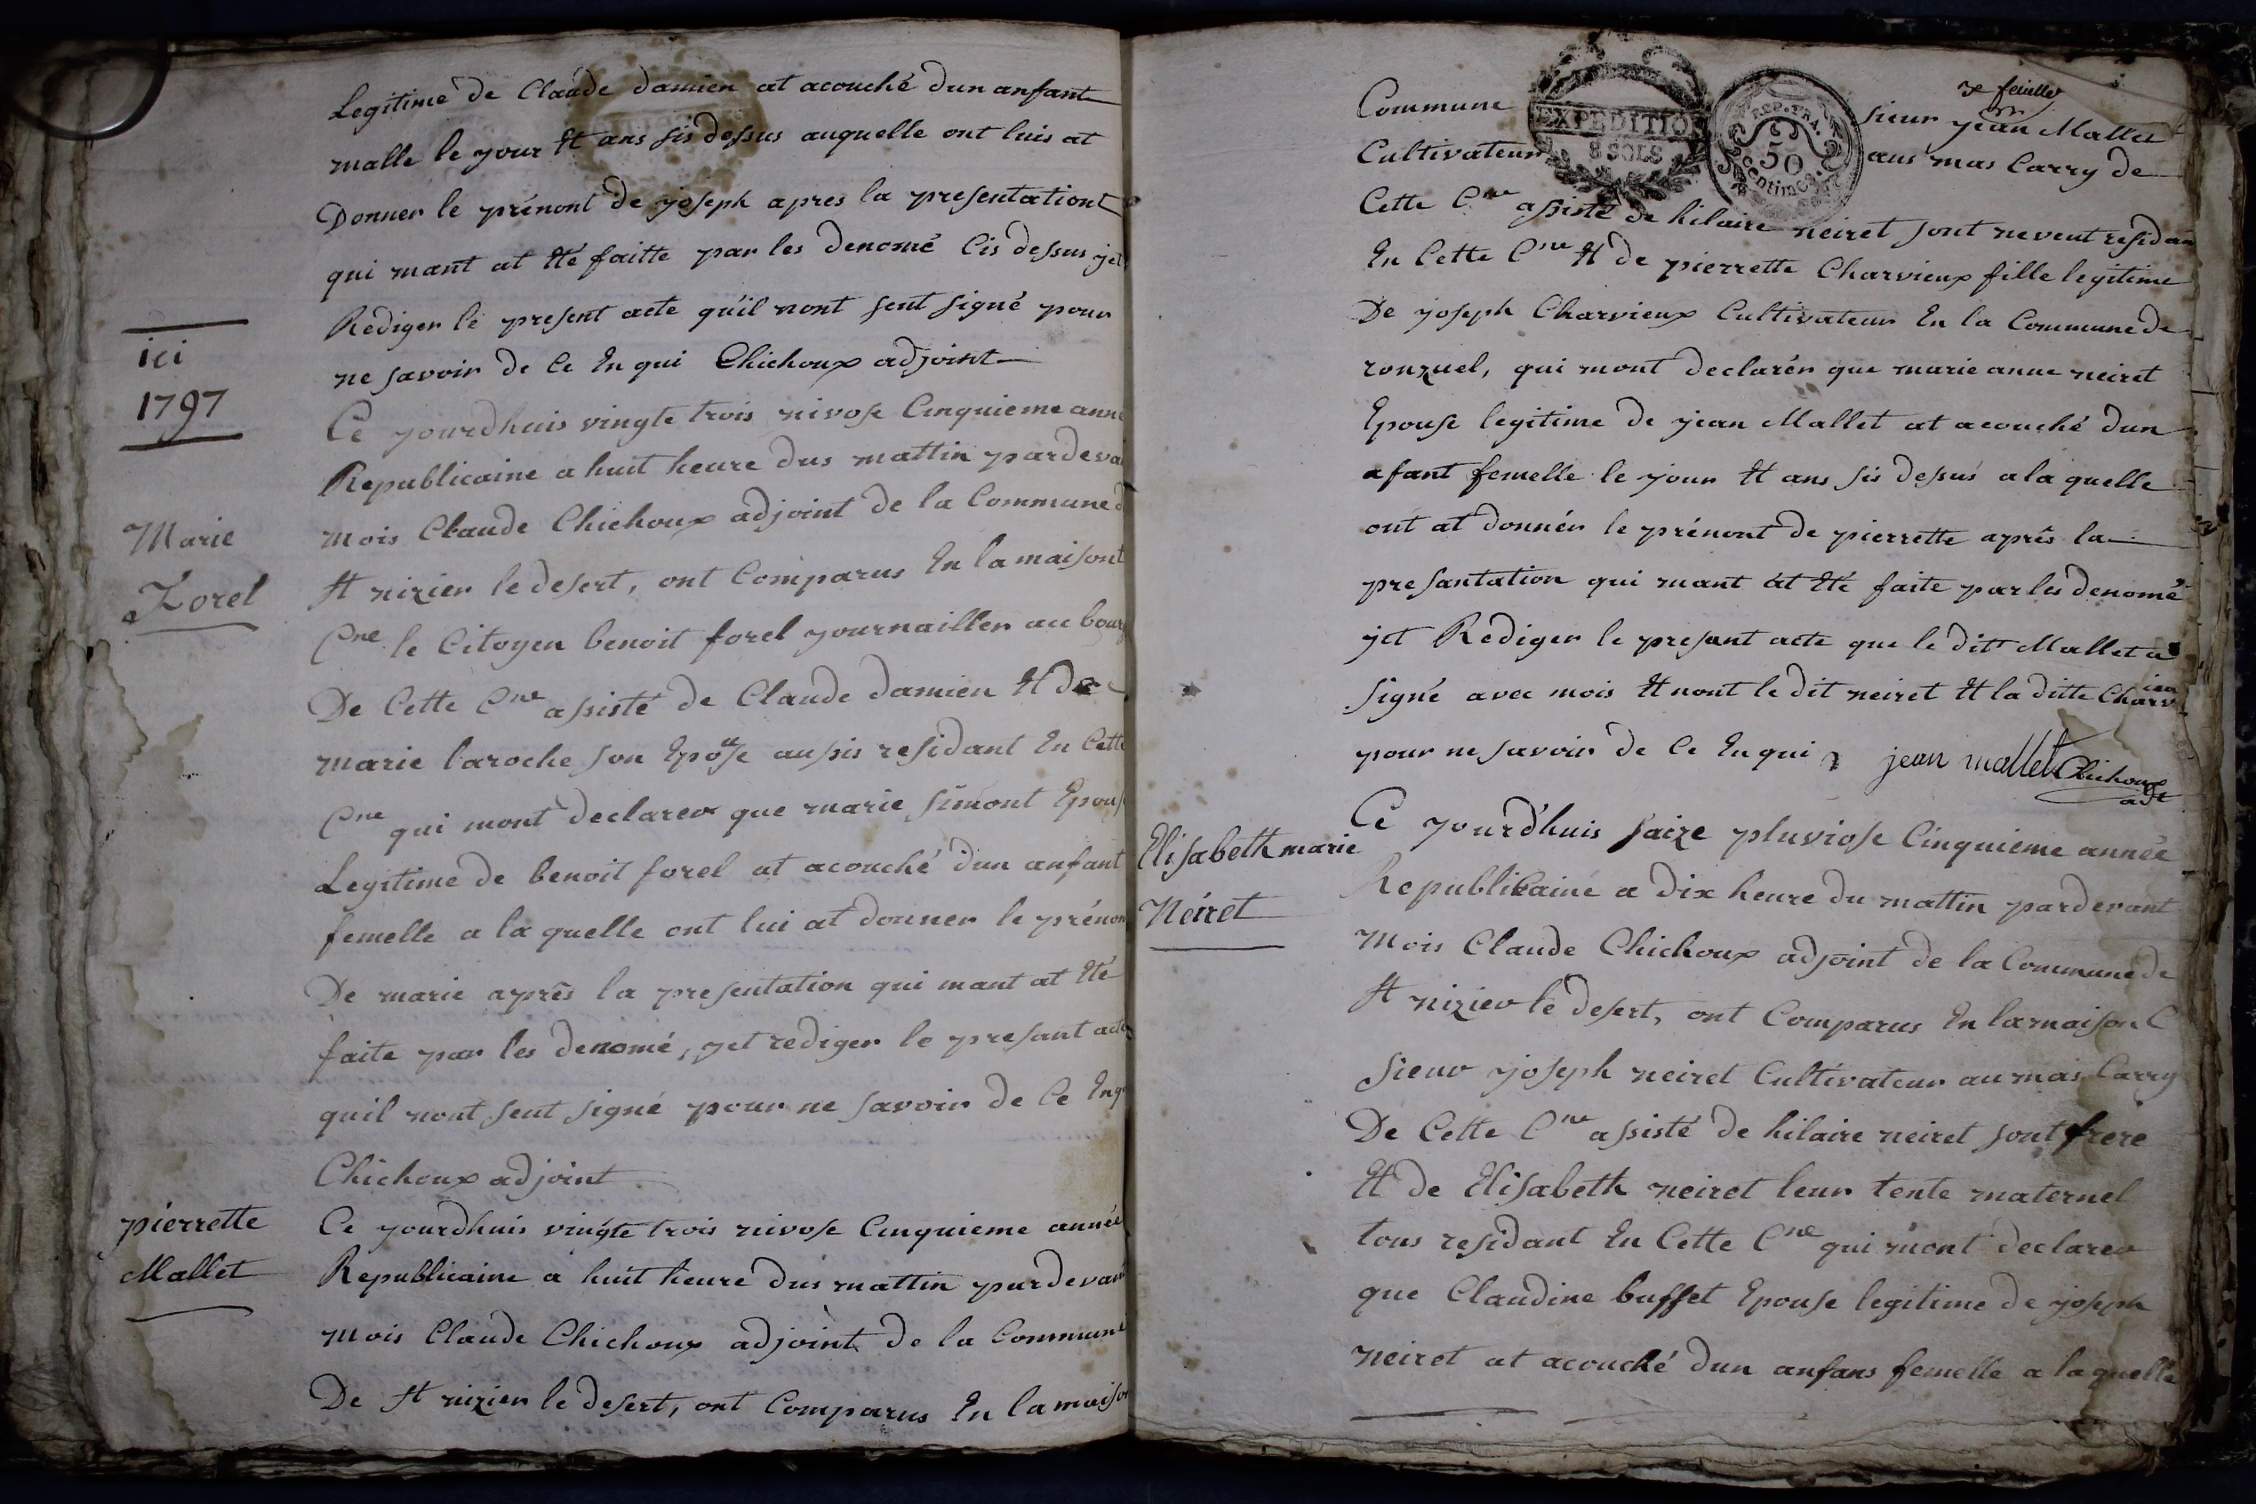 Legitime de Claude damien at acouché dun anfant
malle le jour Et ans sis dessus auquelle ont luis at
Donner le prénont de joseph apres la presentationt
qui mant at Eté faitte par les denomé Cis dessus jet
Rediger le present acte qu'il nont sent signé pour
ne savoir de Ce En qui Chichoux adjoint
ici
1797
Ce jourdhuis vingte trois nivose Cinquieme anné
Republicaine a huit heure dus mattin pardeva
Marie
forel
mois Claude Chichoux adjoint de la Commune d
St nizier le desert, ont Comparus En la maisont
Cne le Citoyen benoit forel journaillier au bourg
De Cette Cne assisté de Claude damien Et de
marie laroche son Epouse aussis residant En Cette
Cne qui mont declarer que marie simont Epouse
Legitime de benoit forel at acouché d'un anfant
femelle a la quelle ont lui at donner le prénon
De marie après la presentation qui mant at Eté
faite par les denomé, jet rediger le presant acte
quil nont sent signé pour ne savoir de Ce Enq
Chichoux adjoint
pierrette
Mallet
Ce jourdhuis vingte trois nivose Cinquieme année
Republicaine a huit heure dus mattin pardevan
mois Claude Chichoux adjoint de la Commune
De St nizier le desert, ont Comparus En la maiso
7e feuille
EXPEDITIO
8 SOLS
REP. FRA.
50
Centimes
Commune sieur jean Mallet
Cultivateur aus mas Carry de
Cette Cne assisté de hilaire neiret sont nevent residan
En Cette Cne Et de pierrette Charvieux fille legitime
De joseph Charvieux Cultivateur En la Commune de
ronzuel, qui mont declarér que marie anne neiret
Epouse legitime de jean Mallet at acouché dun
afant femelle le jour Et ans sis dessus a la quelle
ont at donnér le prénont de pierrette après la
presantation qui mant at Eté faite par les denomé
jet Rediger le presant acte que le dit Mallet a
signé avec mois Et nont le dit neiret Et la ditte Charvieu
pour ne savoir de Ce En qui jean mallet Chichoux
adt
Elisabeth marie
Neiret
Ce jourd'huis saize pluviose Cinquieme année
Republicaine a dix heure du mattin pardevant
mois Claude Chichoux adjoint de la Commune de
St nizier le desert, ont Comparus En la maison C
sieur joseph neiret Cultivateur au mas Carry
De Cette Cne assisté de hilaire neiret sont frere
Et de Elisabeth neiret leur tente maternel
tous residant En Cette Cne qui mont declarer
que Claudine buffet Epouse legitime de joseph
neiret at acouché dun anfans femelle a laquelle